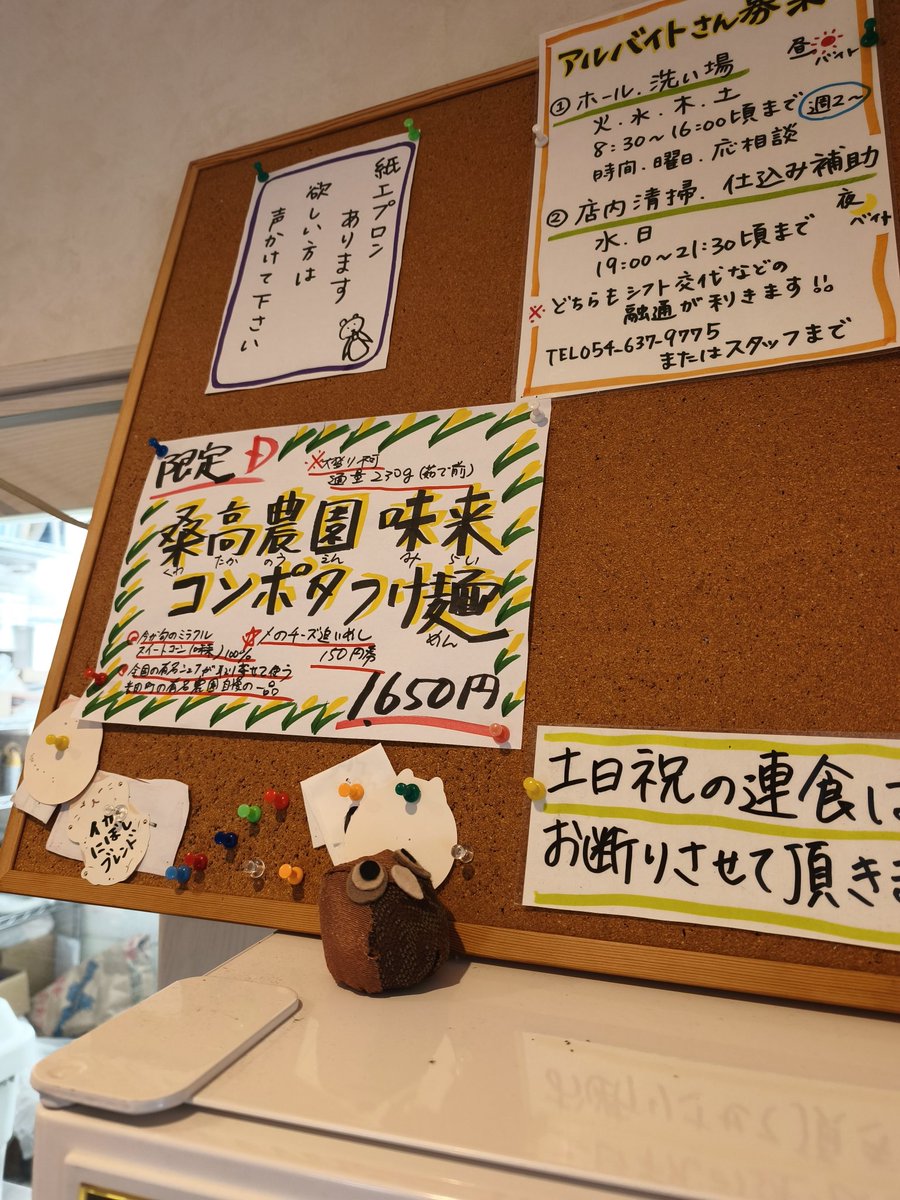 アルバイトさん募集
昼バイト
①ホール.洗い場
火.水.木.土
8:30〜16:00頃まで 週2〜
時間.曜日.応相談
②店内清掃.仕込み補助
夜バイト
水.日
19:00〜21:30頃まで
※どちらもシフト交代などの
融通が利きます!!
TEL054-637-9775
またはスタッフまで
紙エプロン
あります
欲しい方は
声かけて下さい
限定 D
※大盛り不可
通量230g(茹で前)
桑高農園 味来
くわ たか のう えん み らい
コンポタつけ麺
めん
今が旬のミラクル
スイートコーン(味来)100%
〆のチーズ追いめし
150円
全国の有名シェフが取り寄せて使う
自慢の一品
1650円
土日祝の連食は
お断りさせて頂きま
イカ
にぼし
ブレンド